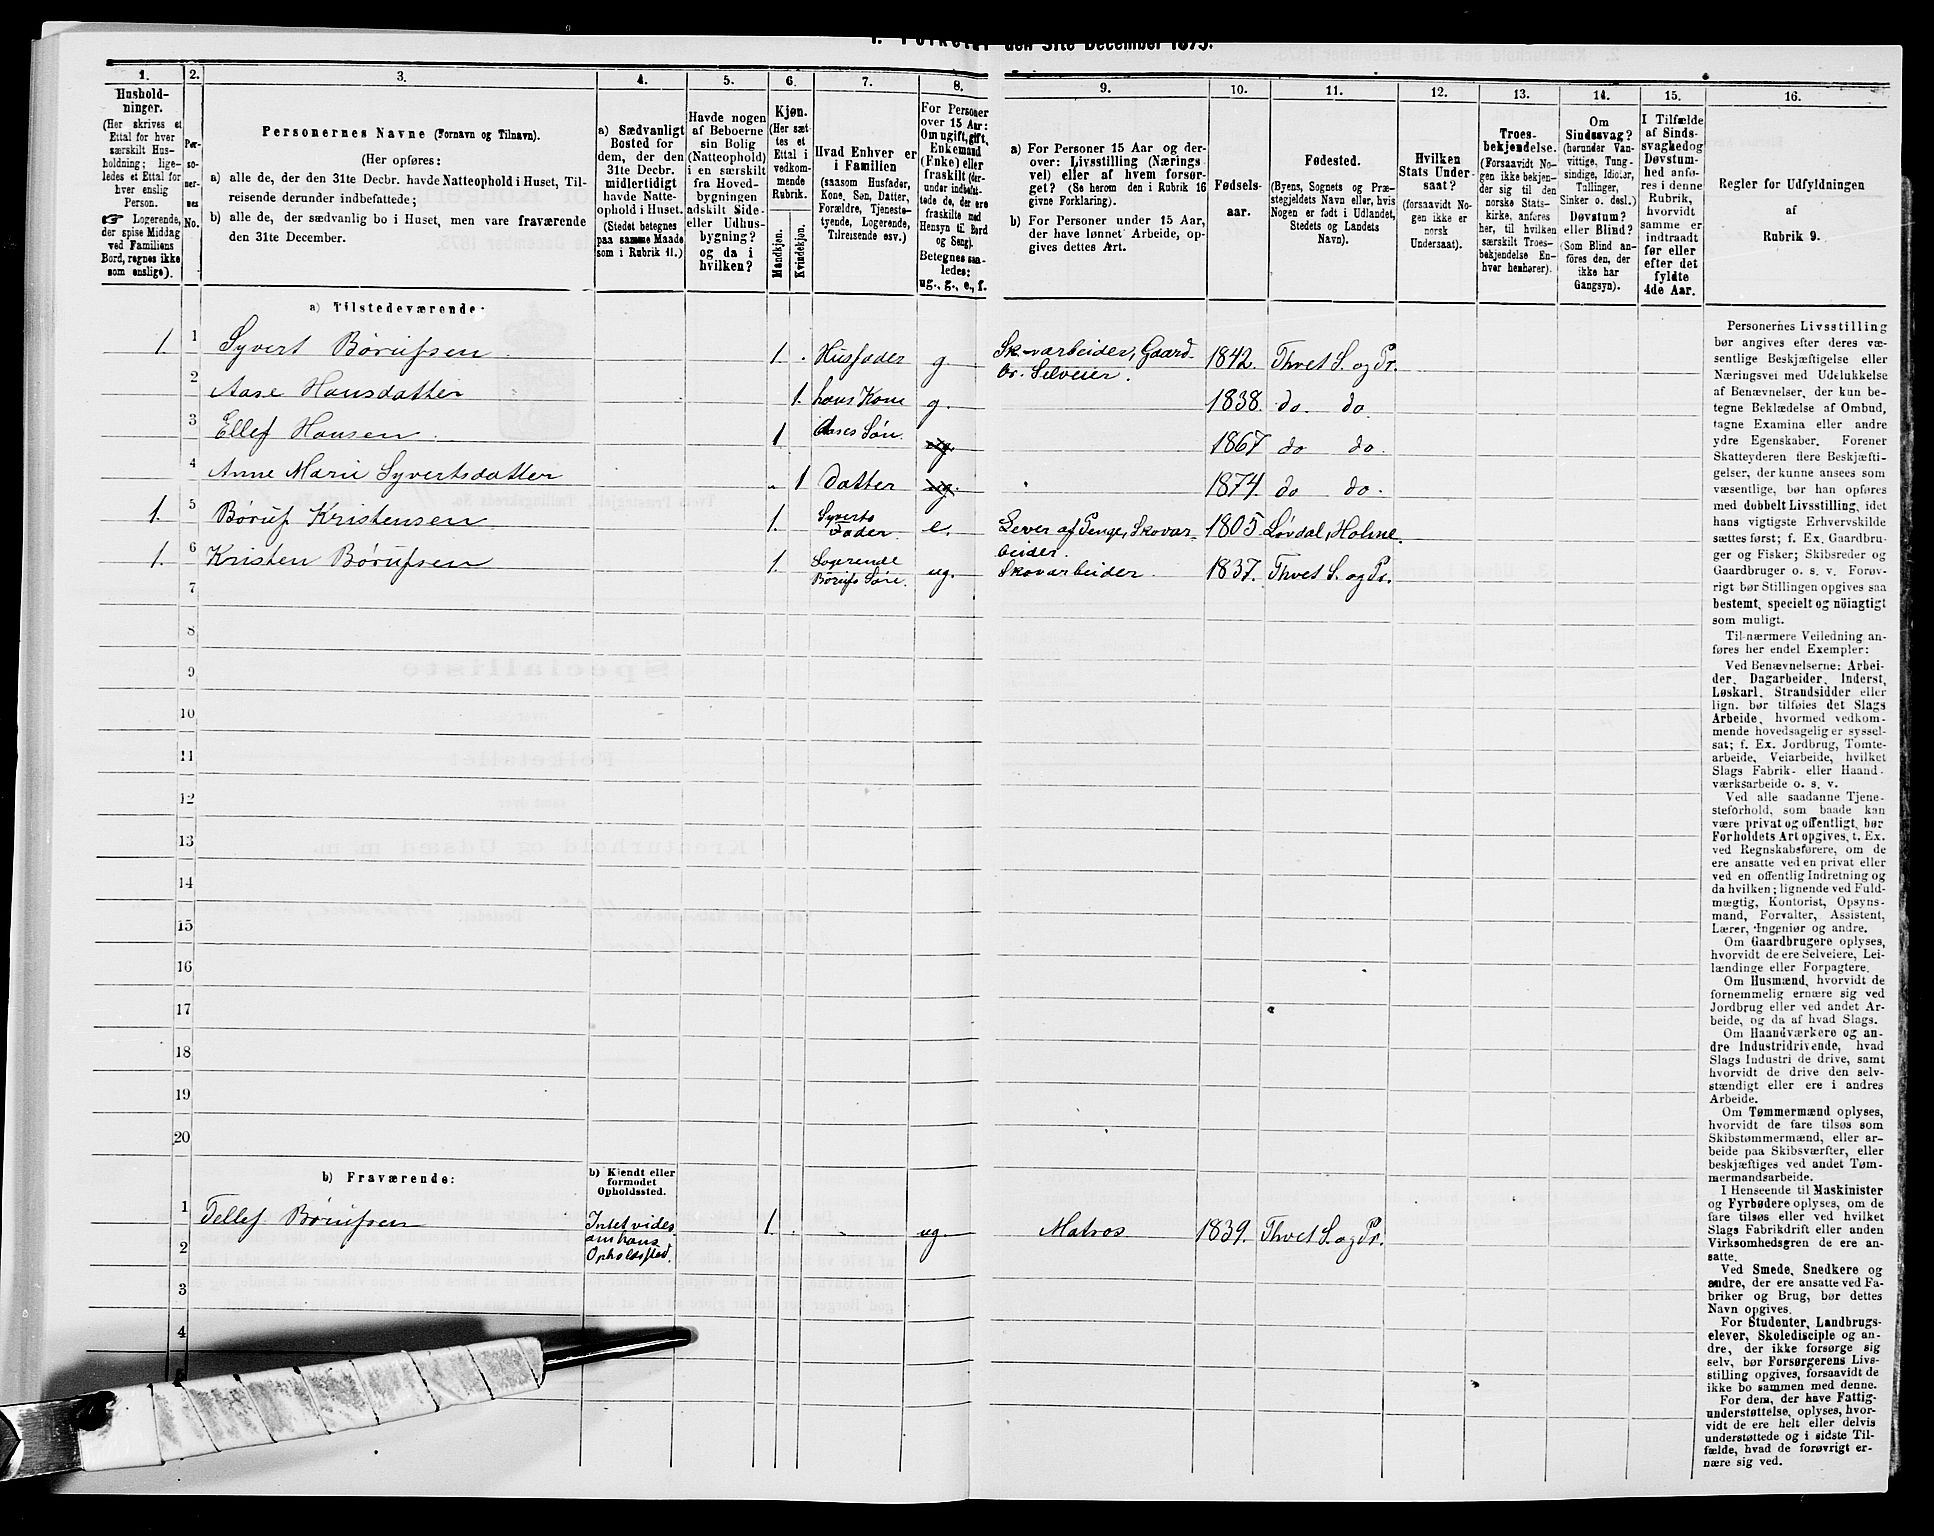 I. Folketal den 31te December 1875.
1.
Hushold-
ninger.
(Her skrives et
Ettal for hver
særskilt Hus-
holdning; lige-
ledes et Ettal for
hver enslig
Person.
☞ Logerende,
der spise Middag
ved Familiens
Bord, regnes ikke
som enslige).
2.
Per-
so-
ner-
nes
No.
3.
Personernes Navne (Fornavn og Tilnavn).
(Her opføres:
a) alle de, der den 31te Decbr. havde Natteophold i Huset, Til-
reisende derunder indbefattede;
b) alle de, der sædvanlig bo i Huset, men vare fraværende
den 31te December.
4.
a) Sædvanligt
Bosted for
dem, der den
31te Decbr.
midlertidigt
havde Natte-
ophold i Huset.
(Stedet betegnes
paa samme Maade
som i Rubrik 11.)
5.
Havde nogen
af Beboerne
sin Bolig
(Natteophold)
i en særskilt
fra Hoved-
bygningen
adskilt Side-
eller Udhus-
bygning?
og da i
hvilken?
6.
Kjøn.
(Her sæt-
tes et
Ettal i
vedkom-
mende
Rubrik.
Mandkjøn.
Kvindekjøn.
7.
Hvad Enhver er
i Familien
(saasom Husfader,
Kone, Søn, Datter,
Forældre, Tjeneste-
tyende, Logerende,
Tilreisende osv.)
8.
For Personer
over 15 Aar:
Om ugift, gift,
Enkemand
(Enke) eller
fraskilt (der-
under indbefat-
tede de, der ere
fraskilte med
Hensyn til Bord
og Seng).
Betegnes saa-
ledes:
ug., g., e., f.
9.
a) For Personer 15 Aar og der-
over: Livsstilling (Nærings
vei) eller af hvem forsør-
get? (Se herom den i Rubrik 16
givne Forklaring).
b) For Personer under 15 Aar,
der have lønnet Arbeide, op-
gives dettes Art.
10.
Fødsels-
aar.
11.
Fødested.
(Byens, Sognets og Præ-
stegjeldets Navn eller, hvis
Nogen er født i Udlandet,
Stedets og Landets
Navn).
12.
Hvilken
Stats Under-
saat?
(forsaavidt No-
gen ikke er
norsk
Undersaat).
13.
Troes-
bekjendelse.
(Forsaavidt No-
gen ikke bekjen-
der sig til den
norske Stats-
kirke, anføres
her, til hvilken
særskilt Troes-
bekjendelse En-
hver henhører).
14.
Om
Sindssvag?
(herunder Van-
vittige, Tung-
sindige, Idioter,
Tullinger,
Sinker o. desl.)
Døvstum?
eller Blind?
(Som Blind an-
føres den, der
ikke har
Gangsyn).
15.
I Tilfælde
af Sinds-
svaghed og
Døvstum-
hed anfø-
res i denne
Rubrik,
hvorvidt
samme er
indtraadt
før eller
efter det
fyldte
4de Aar.
16.
Regler for Udfyldningen
af
Rubrik 9.
a) Tilstedeværende:
1. 1 Syvert Børufsen 1. Husfader g Skovarbeider, Gaard- 1842. Thvet S. og Pr.
br. Selveier.
2 Aase Hansdatter 1. hans Kone g. 1838. do do
3 Ellef Hansen. 1 Aases Søn. ug. 1867 do do.
4 Anne Marie Syvertsdatter 1 Datter ug. 1874. do do.
1. 5 Børuf Kristensen 1. Syverts
Fader. e. Lever af Penge, Skovar- 1805 Løvdal, Holme.
beider.
1. 6 Kristen Børufsen 1. Logerende
Børufs Søn. ug. Skovarbeider 1837. Thvet S. og Pr.
7
8
9
10
11
12
13
14
15
16
17
18
19
20
b) Fraværende:
b) Kjendt eller
formodet
Opholdssted.
1 Tellef Børufsen Intet vides
om hans
Opholdsted. 1. ug. Matros 1839. Thvet S. og Pr.
2
3
4
5
Personernes Livsstilling
bør angives efter deres væ-
sentlige Beskjæftigelse eller
Næringsvei med Udelukkelse
af Benævnelser, der kun be-
tegne Beklædelse af Ombud,
tagne Examina eller andre
ydre Egenskaber. Forener
Skatteyderen flere Beskjæfti-
gelser, der kunne ansees som
væsentlige, bør han opføres
med dobbelt Livsstilling, idet
hans vigtigste Erhvervskilde
sættes først; f. Ex. Gaardbru-
ger og Fisker; Skibsreder og
Gaardbruger o. s. v. Forøv-
rigt bør Stillingen opgives saa
bestemt, specielt og nöiagtigt
som muligt.
Til nærmere Veiledning an-
føres her endel Exempler:
Ved Benævnelserne: Arbei-
der, Dagarbeider, Inderst,
Løskarl, Strandsidder eller
lign. bør tilføies det Slags
Arbeide, hvormed vedkom-
mende hovedsagelig er syssel-
sat; f. Ex. Jordbrug, Tomte-
arbeide, Veiarbeide, hvilket
Slags Fabrik- eller Haand-
værksarbeide o. s. v.
Ved alle saadanne Tjene-
steforhold, som baade kan
være privat og offentligt, bør
Forholdets Art opgives, t. Ex.
ved Regnskabsførere, om de
ere ansatte ved en privat eller
ved en offentlig Indretning og
da hvilken; lignende ved Fuld-
mægtig, Kontorist, Opsyns-
mand, Forvalter, Assistent,
Lærer, Ingeniør og andre.
Om Gaardbrugere oplyses,
hvorvidt de ere Selveiere, Lei-
lændinge eller Forpagtere.
Om Husmænd, hvorvidt de
fornemmelig ernære sig ved
Jordbrug eller ved andet Ar-
beide, og da af hvad Slags.
Om Haandværkere og an-
dre Industridrivende, hvad
Slags Industri de drive, samt
hvorvidt de drive den selv-
stændigt eller ere i andres
Arbeide.
Om Tømmermænd oplyses,
hvorvidt de fare tilsøs som
Skibstømmermænd, eller ar-
beide paa Skibsværfter, eller
beskjæftiges ved andet Tøm-
mermandsarbeide.
I Henseende til Maskinister
og Fyrbødere oplyses, om de
fare tilsøs eller ved hvilket
Slags Fabrikdrift eller anden
Virksomhedsgren de ere an-
satte.
Ved Smede, Snedkere og
andre, der ere ansatte ved Fa-
briker og Brug, bør dettes
Navn opgives.
For Studenter, Landbrugs-
elever, Skoledisciple og an-
dre, der ikke forsørge sig
selv, bør Forsørgerens Livs-
stilling opgives, forsaavidt de
ikke bo sammen med denne.
For dem, der have Fattig-
understøttelse, oplyses, hvor-
vidt de ere helt eller delvis
understøttede og i sidste Til-
fælde, hvad de forøvrigt er-
nære sig ved.